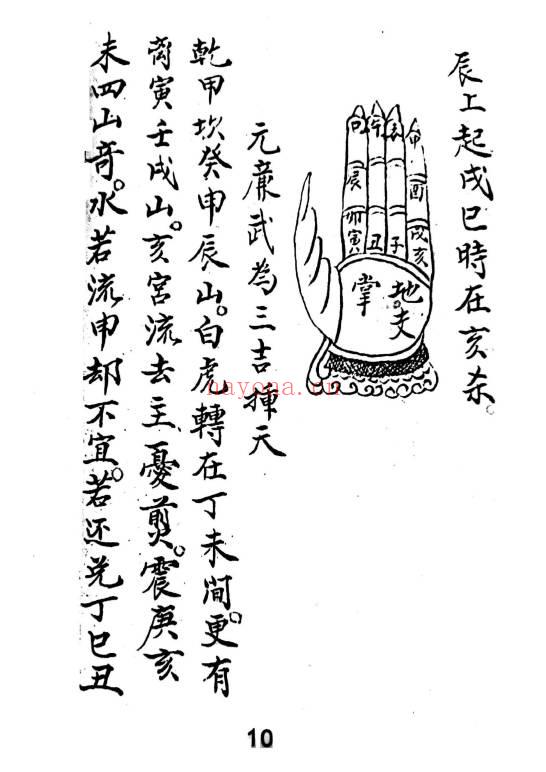 辰上起戌巳時在亥杀。
午
申
辰
酉
卯
寅
丑
子
戌
亥
地夫
掌
元廉武為三吉揮天
乾甲坎癸申辰山。白虎轉在丁未间。更有
离寅壬戌山。亥宮流去主憂煎。震庚亥
未四山奇。水若流申却不宜。若还兑丁巳丑
nayona.cn
10